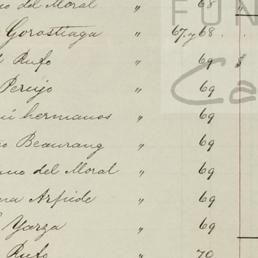 del Moral " 68
Gorostiaga " 67 y 68
Rufo " 69 $
" 69
hermanos " 69
Beaurang " 69
del Moral " 69
" 69
Yarza " 69
Rufo " 70
FUN
Ca